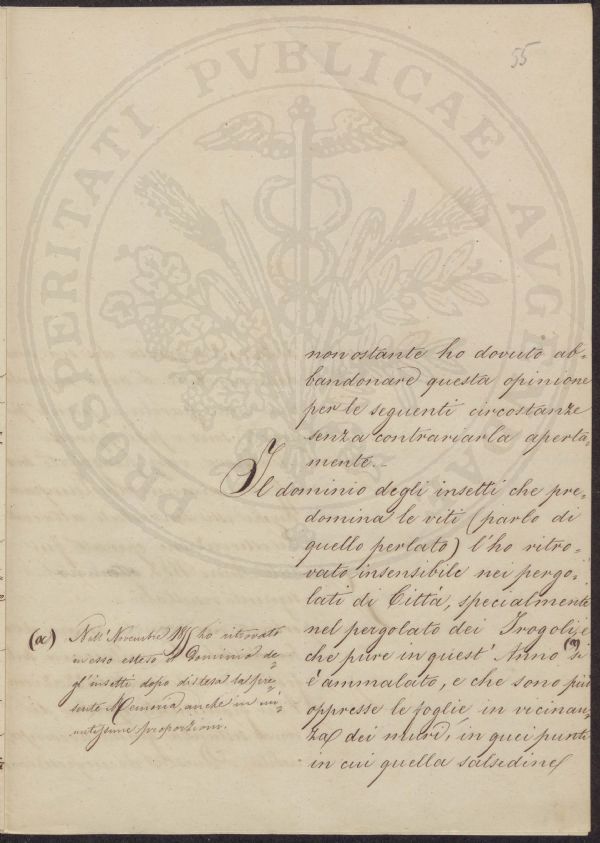 55
PROSPERITATI PVBLICAE AVGENDAE
non ostante ho dovuto ab=
bandonare questa opinione
per le seguenti circostanze
senza contrariarla aperta=
mente.-
Il dominio degli insetti che pre=
domina le viti (parlo di
quello perlato) l'ho ritro=
vato insensibile nei pergo=
lati di Città, specialmente
nel pergolato dei
che pure in quest' Anno (a) si
è ammalato, e che sono più
oppresse le foglie in vicinan=
za dei muri, in quei punti
in cui quella salsedine
(a) Nell' Novembre ho ritrovato
in esso esteso il Dominio de=
gl'insetti dopo distesa la pre=
sente Memoria, anche in mi=
nutissime proporzioni.